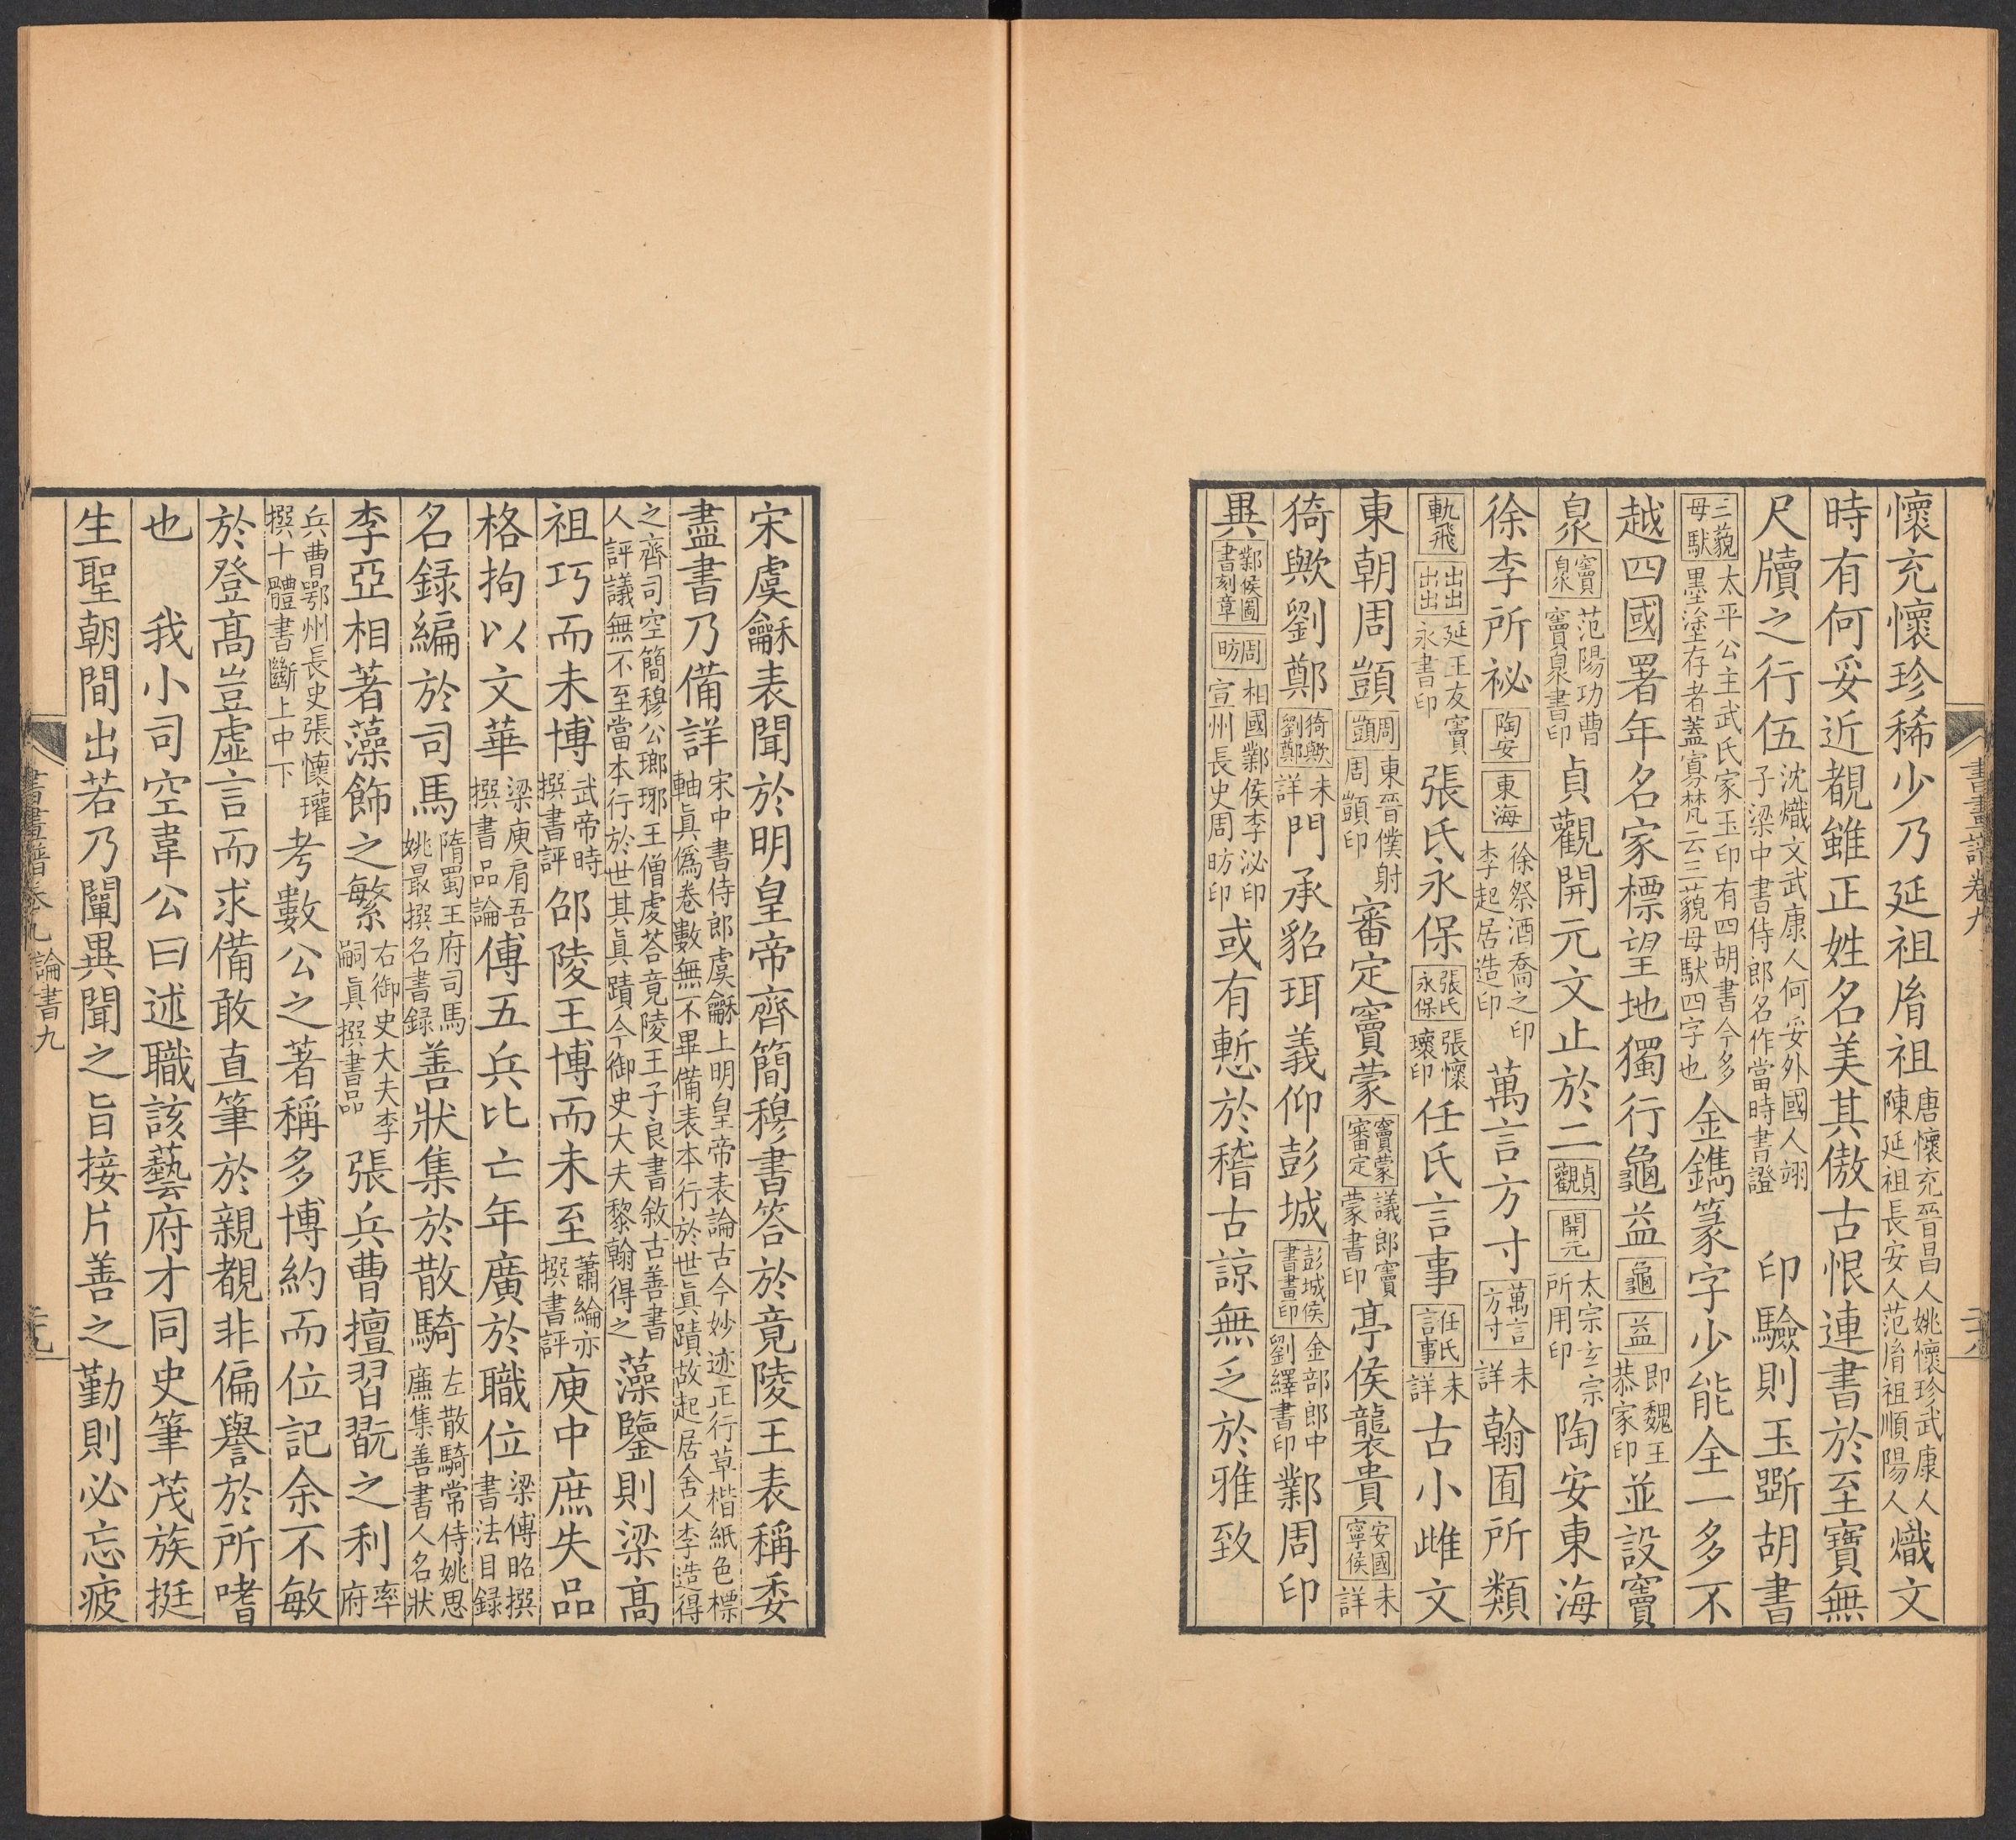 懷充懷珍稀少乃延祖胤祖唐懷充晉昌人姚懷珍武康人陳延祖長安人范胤祖順陽人熾文
時有何妥近覩雖正姓名美其傲古恨連書於至寶無
尺牘之行伍沈熾文武康人何妥外國人翊子梁中書侍郎名作當時書證印驗則玉斲胡書
三藐母馱太平公主武氏家玉印有四胡書今多墨塗存者蓋寡梵云三藐母馱四字也金鐫篆字少能全一多不
越四國署年名家標望地獨行龜益龜益即魏王恭家印並設竇
泉竇泉范陽功曹竇泉書印貞觀開元文止於二貞觀開元太宗玄宗所用印陶安東海
徐李所祕陶安東海徐祭酒喬之印李起居造印萬言方寸萬言方寸未詳翰囿所類
軌飛出出出出延王友竇永書印張氏永保張氏永保張懷瓌印任氏言事任氏言事未詳古小雌文
東朝周顗周顗東晉僕射周顗印審定竇蒙竇蒙審定議郎竇蒙書印亭侯襲貴安國寧侯未詳
猗歟劉鄭猗歟劉鄭未詳門承貂珥義仰彭城彭城侯書畫印金部郎中劉繹書印鄴周印
異鄴侯圖書刻章周昉相國鄴侯李泌印宣州長史周昉印或有慙於稽古諒無乏於雅致
書畫譜卷九
宋虞龢表聞於明皇帝齊簡穆書答於竟陵王表稱委
盡書乃備詳宋中書侍郎虞龢上明皇帝表論古今妙迹正行草楷紙色標軸眞僞卷數無不畢備表本行於世眞蹟故起居舍人李造得
之齊司空簡穆公瑯琊王僧虔荅竟陵王子良書敘古善書人評議無不至當本行於世其眞蹟今御史大夫黎翰得之藻鑒則梁高
祖巧而未博武帝時撰書評邵陵王博而未至蕭綸亦撰書評庾中庶失品
格拘以文華梁庾肩吾撰書品論傅五兵比亡年廣於職位梁傅昭撰書法目録
名録編於司馬隋蜀王府司馬姚最撰名書録善狀集於散騎左散騎常侍姚思廉集善書人名狀
李亞相著藻飾之繁右御史大夫李嗣眞撰書品張兵曹擅習翫之利率府
兵曹鄂州長史張懷瓘撰十體書斷上中下考數公之著稱多博約而位記余不敏
於登高豈虛言而求備敢直筆於親覩非偏譽於所嗜
也　我小司空韋公曰述職該藝府才同史筆茂族挺
生聖朝間出若乃闡異聞之旨接片善之勤則必忘疲
書畫譜卷九　論書九　二十九